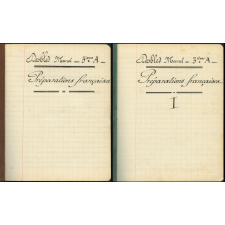 Dabblid Marcel _ 3ème A _
Préparations françaises
Dabblid Marcel _ 3ème A _
Préparations françaises
I